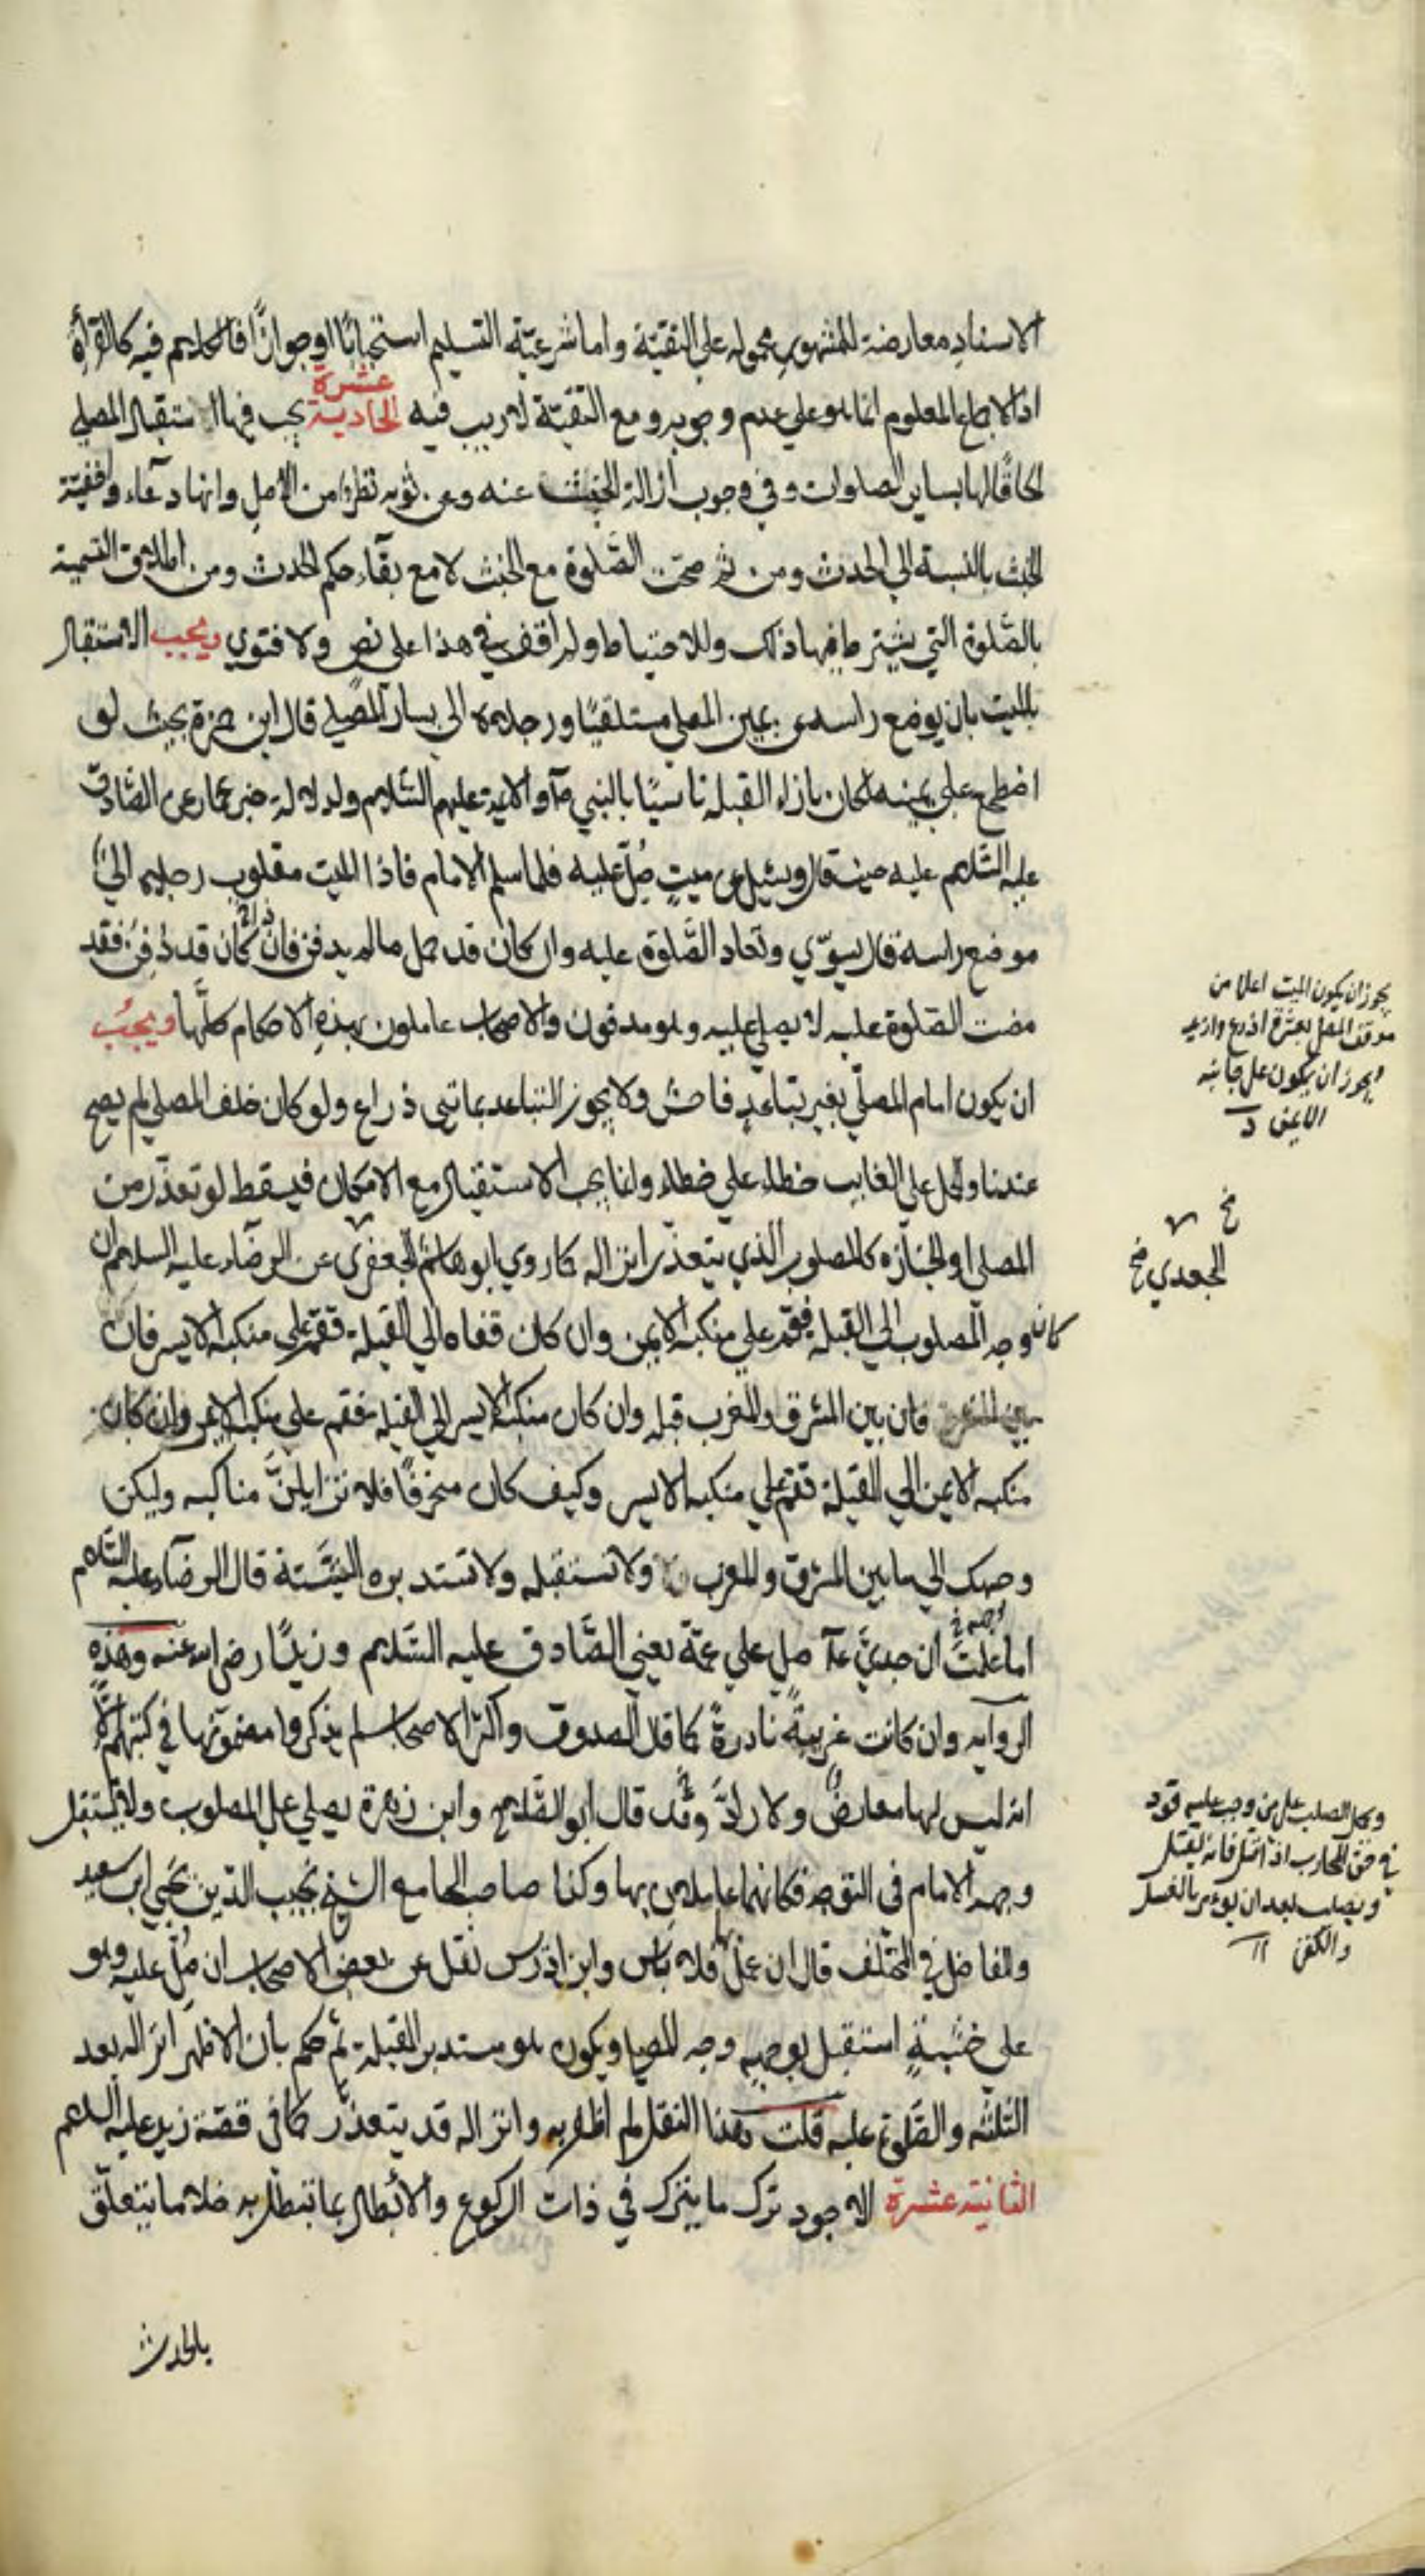 الاسناد معارضة للمشهور محمولة على التقية واما شرعية التسليم استحبابًا او جوازًا فالكلام فيه كالقراءة
اذ الاجماع المعلوم انما هو على عدم وجوبه ومع التقية لا ريب فيه الحادية عشرة يجب فيها استقبال المصلي
الحاقًا لها بساير الصلوات وفي وجوب ازالة الخبث عنه وعن ثوبه نظر من الاصل وانها دعاء واخفية
الخبث بالنسبة الى الحدث ومن ثم صحت الصلوة مع الخبث لا مع بقاء حكم الحدث ومن اطلاق التسمية
بالصلوة التي يشترط فيها ذلك وللاحتياط ولم اقف في هذا على نص ولا فتوى ويجب الاستقبال
بالميت بان يوضع راسه عن يمين المصلي مستلقيًا ورجلاه الى يسار المصلي قال ابن حمزة بحيث لو
اضطجع على يمينه لكان بازاء القبلة تاسيًا بالنبي ص والائمة عليهم السلام ولدلالة خبر عمار عن الصادق
عليه السلام عليه حيث قال وسئل عن ميت صُلّي عليه فلما سلم الامام فاذا الميت مقلوب رجليه الى
موضع راسه قال يسوّي وتعاد الصلوة عليه وان كان قد حمل ما لم يدفن فان كان قد دُفِن فقد
مضت الصلوة عليه لا يصلى عليه وهو مدفون والاصحاب عاملون بهذه الاحكام كلها ويجب
ان يكون امام المصلي بغير تباعد فاحش ولا يجوز التباعد بماتى ذراع ولو كان خلف المصلي لم يصح
عندنا والحمل على الغايب خطاء على خطاء وانما يجب الاستقبال مع الامكان فيسقط لو تعذر من
المصلي او الجنازه كالمصلوب الذي يتعذر انزاله كما روي ابو هاشم الجعفري عن الرضا عليه السلام ان
كان وجه المصلوب الى القبلة فقم على منكبه الايمن وان كان قفاه الى القبلة فقم على منكبه الايسر فان
بين المشرق والمغرب قبلة وان كان منكبه الايسر الى القبلة فقم على منكبه الايمن وان كان
منكبه الايمن الى القبلة فقم على منكبه الايسر وكيف كان منحرفًا فلا تزايلنّ مناكبه وليكن
وجهك الى ما بين المشرق والمغرب ولا تستقبله ولا تستدبره البتّة قال الرضا عليه السلام
اما علمت ان جديّ ع صلى على عمّه يعني الصادق عليه السلام وزيدًا رضي الله عنه وهذه
الرواية وان كانت غريبة نادرة كما قال الصدوق واكثر الاصحاب لم يذكروا مضمونها في كتبهم الا
انه ليس لها معارض ولا رادّ وقد قال ابو الصلاح وابن زهرة يصلي على المصلوب ولا يستقبل
وجهه الامام في التوجه فكانهما عاملان بها وكذا صاحب الجامع الشيخ نجيب الدين يحيى ابن سعيد
والفاضل في المختلف قال ان عمل بها فلا باس وابن ادريس نقل عن بعض الاصحاب ان صُلّي عليه وهو
على خشبةٍ استقبل بوجهه وجه المصلي ويكون هو مستدبر القبلة ثم حكم بان الاظهر انزاله بعد
الثلثه والصلوة عليه قلت هذا النقل لم اظفر به وانزاله قد يتعذر كما في قصّة زيد عليه السلام
الثانية عشرة الاجود ترك ما يترك في ذات الركوع والابطال بما تبطل به خلا ما يتعلق
بالحدث
يجوز ان يكون الميت اعلا من
موقف المصلي بعشرة اذرع وازيد
ويجوز ان يكون على جانبه
الايمن
الجعدي خ
ومحل الصلب على من وجب عليه قود
في حق المحارب اذا قتل فانه يقتل
ويصلب بعد ان يؤمر بالغسل
والكفن